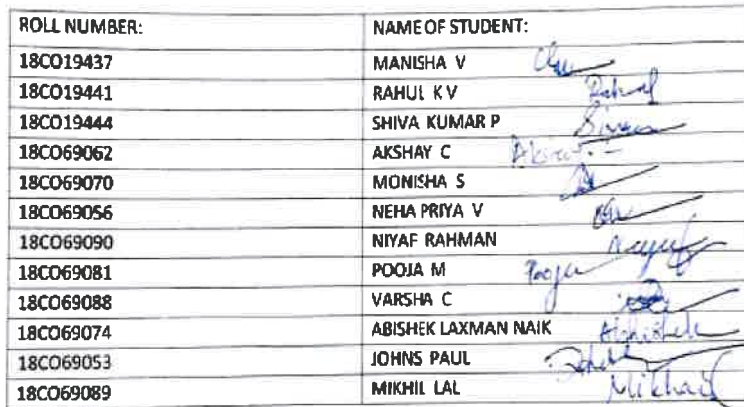 ROLL NUMBER: NAME OF STUDENT:
18CO19437 MANISHA V
18CO19441 RAHUL K V Rahul
18CO19444 SHIVA KUMAR P
18CO69062 AKSHAY C
18CO69070 MONISHA S
18CO69056 NEHA PRIYA V
18CO69090 NIYAF RAHMAN
18CO69081 POOJA M Pooja
18CO69088 VARSHA C
18CO69074 ABISHEK LAXMAN NAIK Abhishek
18CO69053 JOHNS PAUL
18CO69089 MIKHIL LAL Mikhail